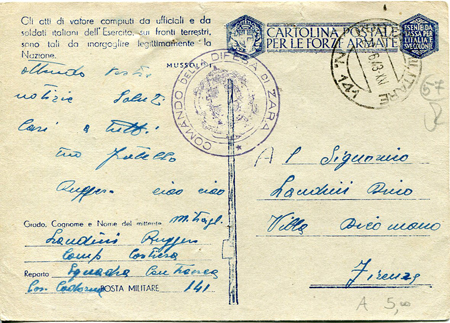 Gli atti di valore compiuti da ufficiali e da
soldati italiani dell'Esercito, sui fronti terrestri,
sono tali da inorgoglire legittimamente la
Nazione.
MUSSOLINI
attendo vostre
notizie Saluti
Cari a tutti
tuo fratello
Ruggero ciao ciao
Grado, Cognome e Nome del mittente
Landini Ruggero
Comp Costiera
Reparto Squadra
POSTA MILITARE 141
CARTOLINA POSTALE
PER LE FORZE ARMATE
ESENTE DA
TASSA PER
L'ITALIA E
COMANDO DELLA DIFESA DI ZARA
N. 141
Al Signorino
Landini Dino
Villa Dicomano
Firenze
67
A 5,00